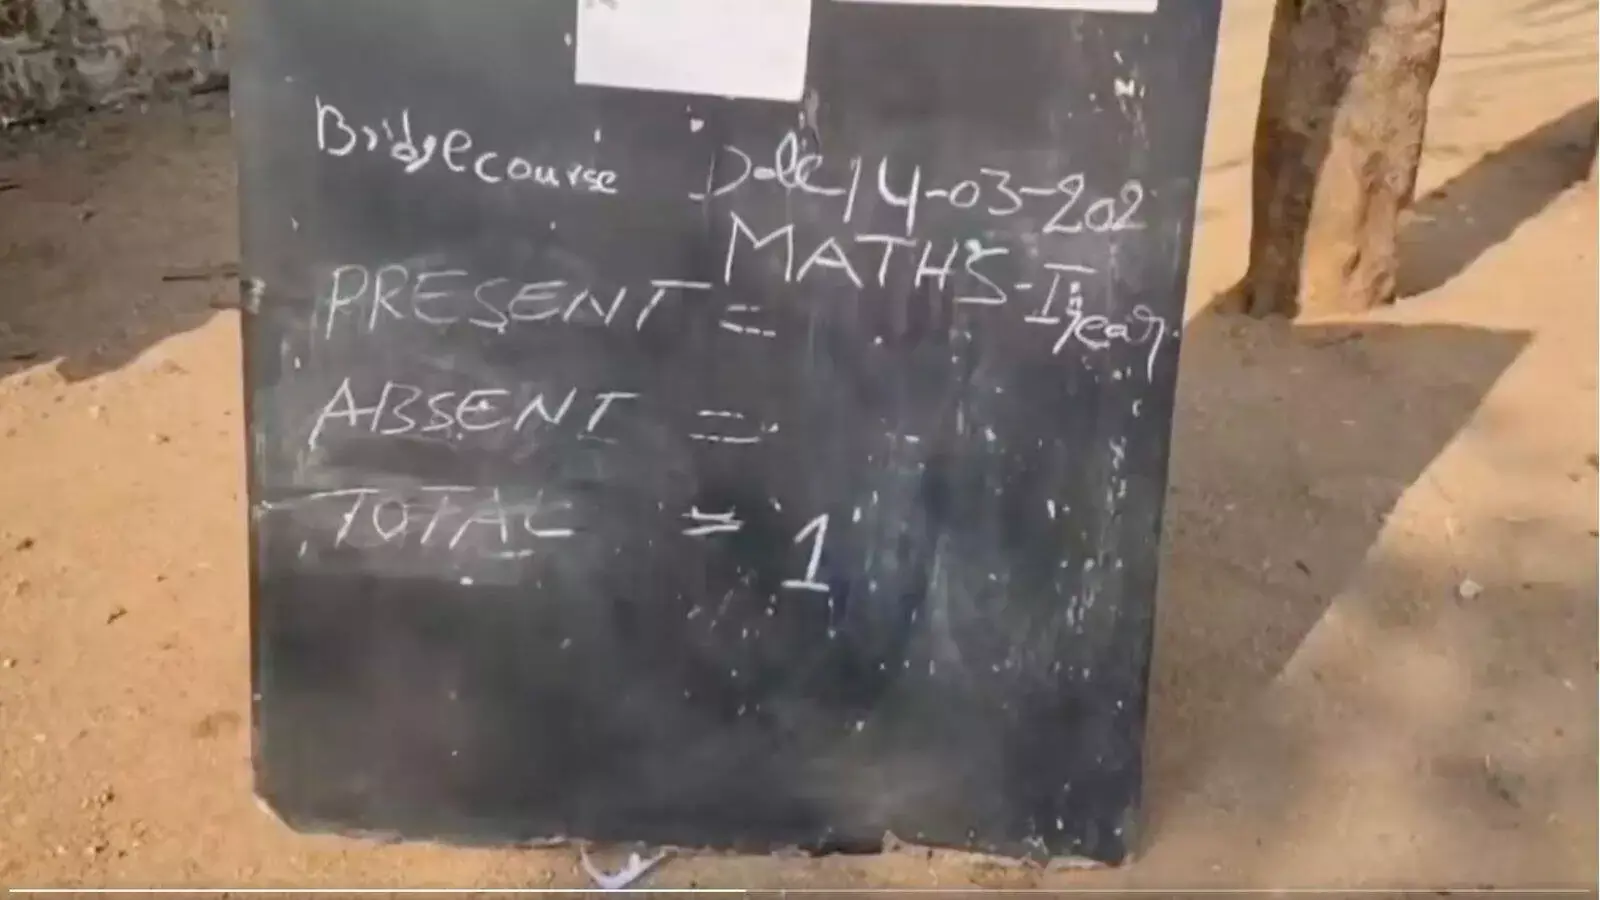 Bridge course Date 14-03-202
MATHS-I year.
PRESENT =
ABSENT =
TOTAL = 1